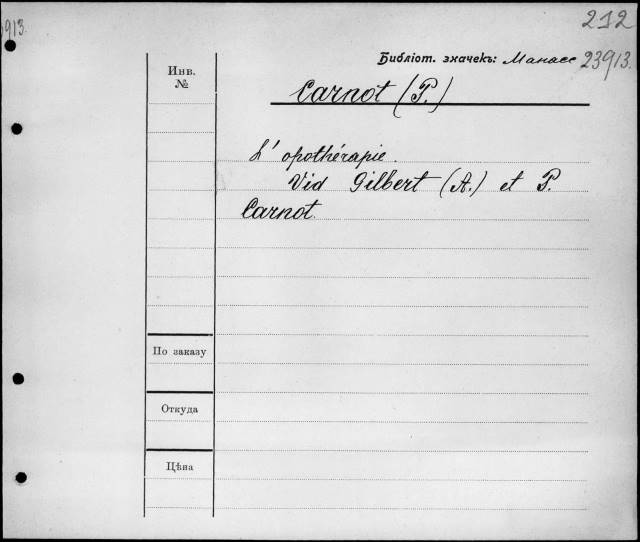 3913.
212
Инв.
№
Библіот. значекъ: Манасс 23913.
Carnot (P.)
L' opothérapie.
Vid Gilbert (A.) et P.
Carnot.
По заказу
Откуда
Цѣна